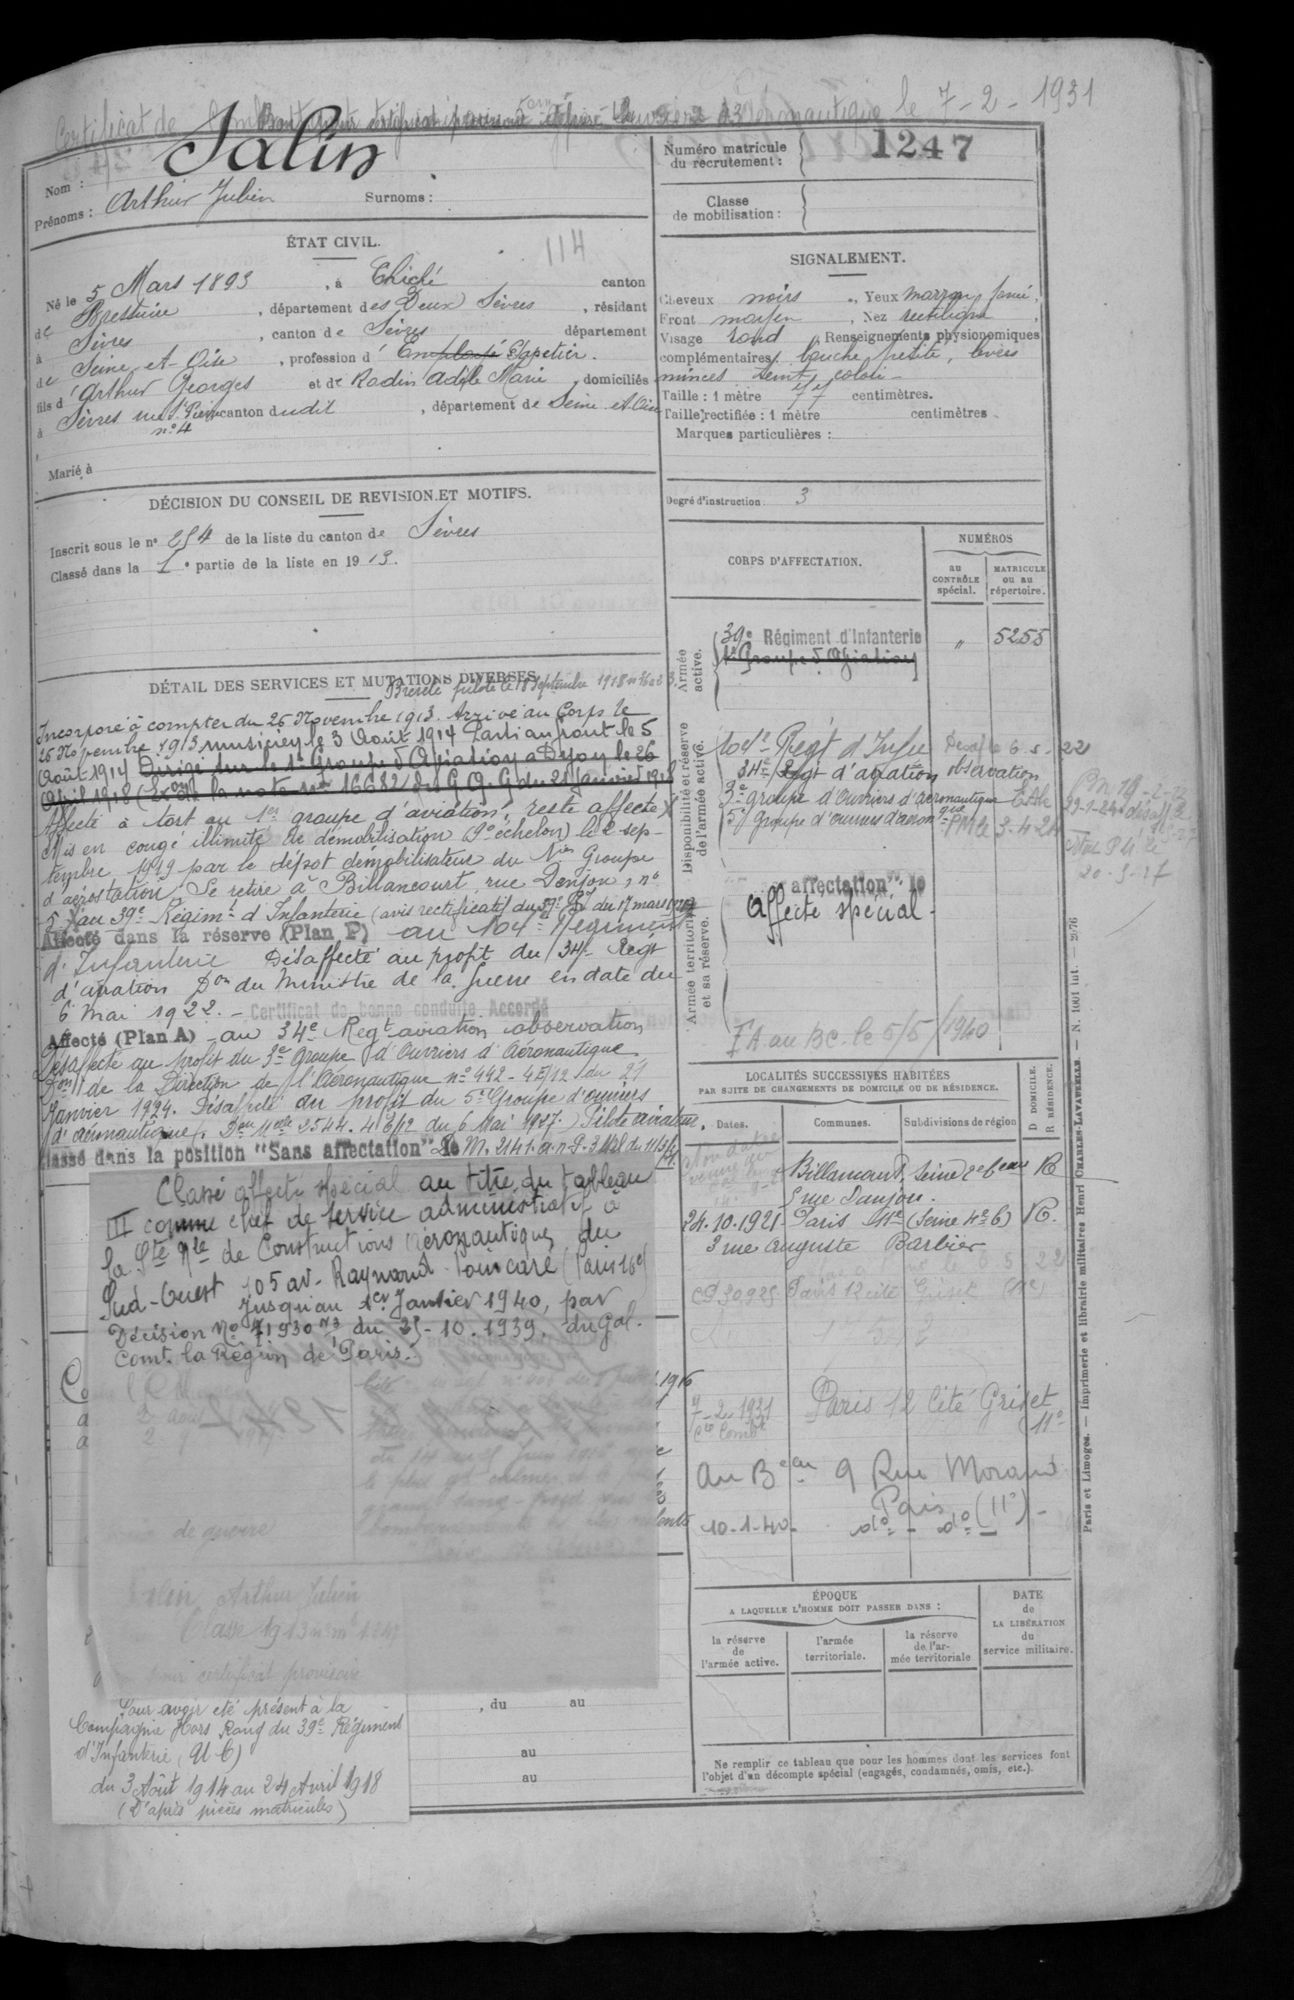 Certificat de Combattant le 7-2-1931
Nom : Jalin
Prénoms : Arthur Julien Surnoms :
Numéro matricule
du recrutement : 1247
Classe
de mobilisation :
ÉTAT CIVIL.
114
Né le 5 Mars 1893, à Chiché canton
de Bressuire, département des Deux Sèvres, résidant
à Sèvres, canton de Sèvres département
de Seine et Oise, profession d' Employé Papetier.
fils d' Arthur Georges et de Rodin Adèle Marie, domiciliés
à Sèvres rue St Pierre canton dudit, département de Seine et Oise
n° 4
Marié à
SIGNALEMENT.
Cheveux noirs, Yeux marron foncé,
Front moyen, Nez rectiligne,
Visage rond, Renseignements physionomiques
complémentaires bouche petite, lèvres
minces teint coloré
Taille : 1 mètre 77 centimètres.
Taille rectifiée : 1 mètre centimètres
Marques particulières :
Degré d'instruction 3
DÉCISION DU CONSEIL DE REVISION ET MOTIFS.
Inscrit sous le n° 254 de la liste du canton de Sèvres
Classé dans la 1e partie de la liste en 1913.
CORPS D'AFFECTATION.
NUMÉROS
au
CONTRÔLE
spécial.
MATRICULE
ou au
répertoire.
Armée
active.
39e Régiment d'Infanterie " 5255
1er Groupe d'Aviation
Disponibilité et réserve
de l'armée active.
104e Régt d'Infrie Désaf le 6-5-22
34e Régt d'aviation observation
3e groupe d'Ouvriers d'aéronautique
5e groupe d'ouvriers d'aéronque
Armée territoriale
et sa réserve.
affectation" le
Affecté spécial -
FA au BC. le 5/5/1940
DÉTAIL DES SERVICES ET MUTATIONS DIVERSES.
Breveté pilote le 18 Septembre 1918
Incorporé à compter du 26 Novembre 1913. Arrivé au Corps le
26 Novembre 1913 musicien le 3 Août 1914 Parti au front le 5
Août 1914 Dirigé sur le 1er Groupe d'Aviation à Dijon le 26
Avril 1918 la note n° 16682 du G.Q.G du 21 Janvier 1918
Affecté à tort au 1er groupe d'aviation, reste affecté X
Mis en congé illimité de démobilisation (9e échelon) le 2 sep-
tembre 1919 par le dépôt démobilisateur du Groupe
d'aérostation Se retire à Billancourt, rue Donjon, n°
5 X au 39e Régimt d'Infanterie (avis rectificatif du 39e RI du 17 mars
Affecté dans la réserve (Plan P) au 104e Régiment
d'Infanterie Désaffecté au profit du 34e Régt
d'aviation Don du Ministre de la Guerre en date du
6 mai 1922. - Certificat de bonne conduite Accordé
Affecté (Plan A) - au 34e Régt aviation observation
Désaffecté au profit du 3e Groupe d'Ouvriers d'Aéronautique
Don de la Direction de l'Aéronautique n° 442-4E/12 du 21
Janvier 1924. Désaffecté au profit du 5e Groupe d'ouvriers
d'aéronautique. Don Melle 2544.4E/12 du 6 Mai 1927.) Pilote aviateur.
Classé dans la position "Sans affectation" le
Classé affecté spécial au titre du tableau
III comme chef de service administratif à
la Sté Nle de Constructions Aéronautiques du
Sud-Ouest 105 av. Raymond Poincaré (Paris 16e)
Jusqu'au 1er Janvier 1940, par
Décision No 71930 du 25-10.1939. du Gal.
Comt. la Région de Paris.
de guerre
Jalin Arthur Julien
Classe 1913 n° m° 1247
pour certificat provisoire
Pour avoir été présent à la
Compagnie Hors Rang du 39e Régiment
d'Infanterie (U C)
du 3 Août 1914 au 24 Avril 1918
(D'après pièces matricules)
, du au
au
au
LOCALITÉS SUCCESSIVES HABITÉES
PAR SUITE DE CHANGEMENTS DE DOMICILE OU DE RÉSIDENCE.
Dates.
Communes.
Subdivisions de région
D DOMICILE.
R RÉSIDENCE.
Billancourt, Seine 2e beau R
5 rue Danjou.
24.10.1921 Paris 11e (Seine 4e B) R.
3 rue Auguste Barbier
Paris 12 cité Griset (11e)
7-2-1931 Paris 12 Cité Griset
Cte Combt 11e
au Beau 9 Rue Morand
Paris (11e) -
10-1-40- do - do -
ÉPOQUE
A LAQUELLE L'HOMME DOIT PASSER DANS :
la réserve
de
l'armée active.
l'armée
territoriale.
la réserve
de l'ar-
mée territoriale
DATE
de
LA LIBÉRATION
du
service militaire.
Ne remplir ce tableau que pour les hommes dont les services font
l'objet d'un décompte spécial (engagés, condamnés, omis, etc.).
Paris et Limoges. — Imprimerie et librairie militaires Henri CHARLES-LAVAUZELLE. — N. 1001 int. — 2676